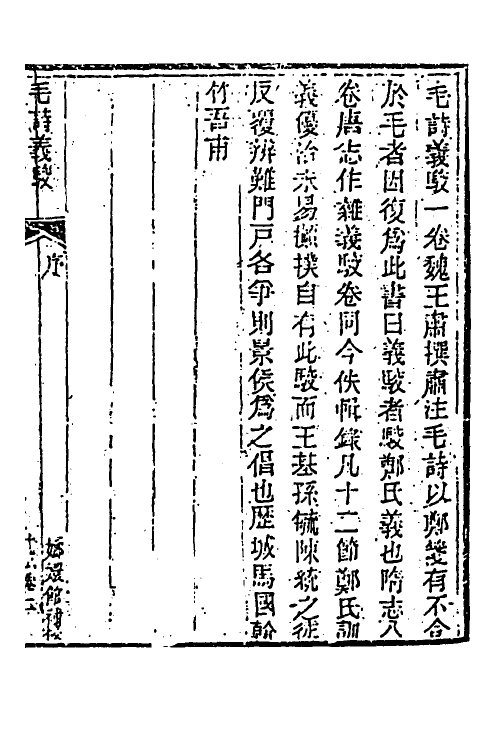 毛詩義駁一卷魏王肅撰肅注毛詩以鄭箋有不合
於毛者因復為此書曰義駁者駁鄭氏義也隋志八
卷唐志作雜義駁卷同今佚輯錄凡十二節鄭氏訓
義優洽未易攧撲自有此駁而王基孫毓陳統之徒
反覆辨難門戸各爭則景侯為之倡也歴城馬國翰
竹吾甫
毛詩義駁
序
嫏嬛館補校